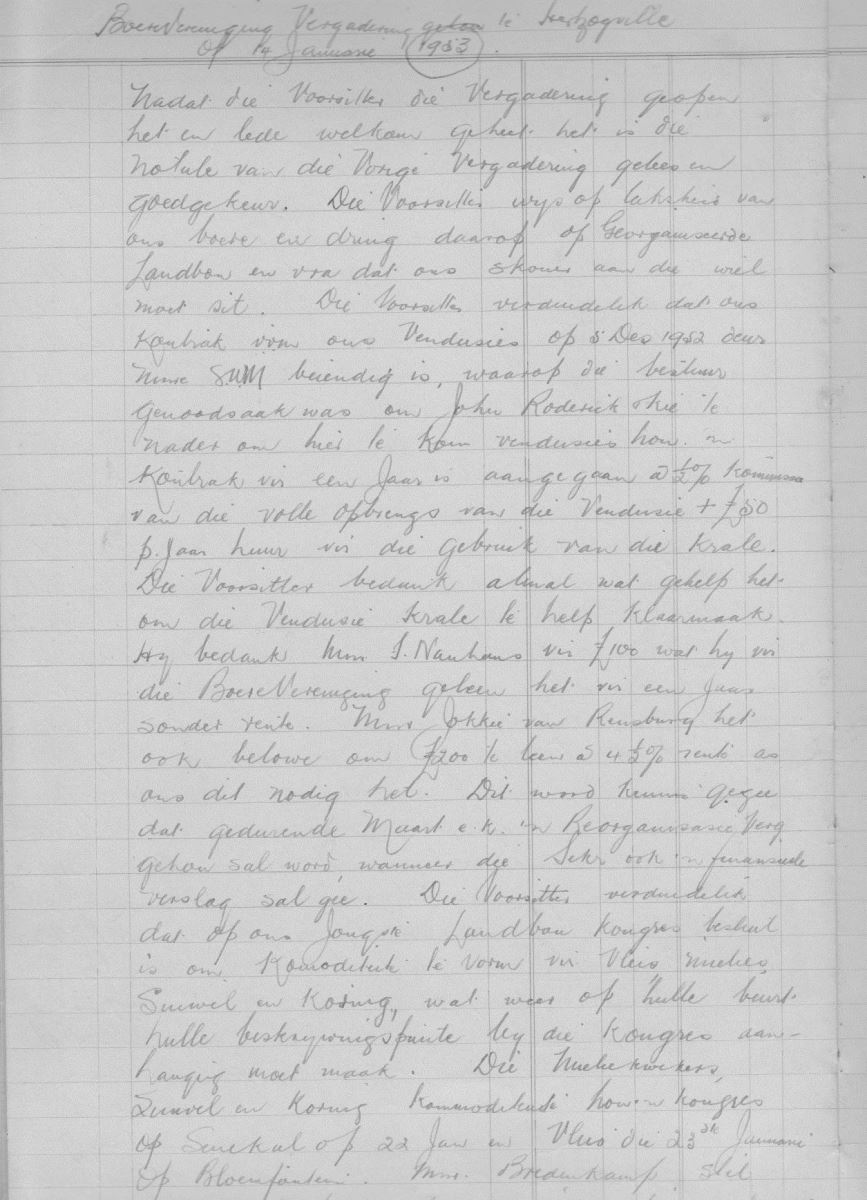 BoereVereniging Vergadering gehou te Hertzogville
op 14 Januarie 1953.
Nadat die Voorsitter die Vergadering geopen
het en lede welkom geheet het is die
Notule van die Vorige Vergadering gelees en
goedgekeur. Die Voorsitter wys op laksheid van
ons boere en dring daarop op Georganiseerde
Landbou en vra dat ons skouer aan die wiel
moet sit. Die Voorsitter verduidelik dat ons
Kontrak vir ons Vendusies op 5 Des 1952 deur
Mnre SUM beiendig is, waarop die bestuur
Genoodsaak was om John Roderick Mkie te
nader om hier te kom vendusies hou. 'n
Kontrak vir een Jaar is aangegaan à ½% Kommissie
van die volle opbrengs van die Vendusie + £50
p. Jaar huur vir die gebruik van die Krale.
Die Voorsitter bedank almal wat gehelp het
om die Vendusie Krale te help Klaarmaak.
Hy bedank Mnr J. Nauhaus vir £100 wat hy vir
die BoereVereniging geleen het vir een Jaar
sonder rente. Mnr Jokkie van Rensburg het
ook belowe om £200 te leen à 4½% rente as
ons dit nodig het. Dit word kennis gegee
dat gedurende Maart e.k. 'n Reorganisasie Verg
gehou sal word, wanneer die Sekr ook 'n finansieele
verslag sal gee. Die Voorsitter verduidelik
dat op ons Jongste Landbou Kongres besluit
is om Komoditeite te vorm vir Vleis Mielies,
Suiwel en Koring, wat weer op hulle beurt
hulle beskrywingspunte by die Kongres aan-
hangig moet maak. Die Mieliekwekers,
Suiwel en Koring Kommoditeite hou 'n Kongres
op Senekal op 22 Jan en Vleis die 23ste Januarie
op Bloemfontein. Mnr. Bredenkamp stel